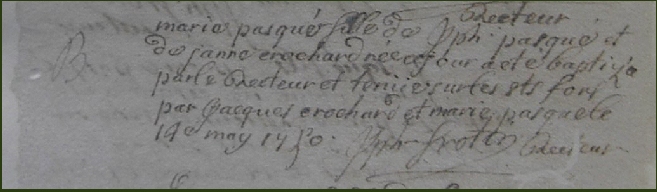 Recteur
marie pasqué fille de Jph pasqué et
de janne crochard née ce jour a eté baptizé
par le Recteur et tenüe sur les sts fons
par Jacques crochard et marie pasqué le
14e may 1730. Recteur
B